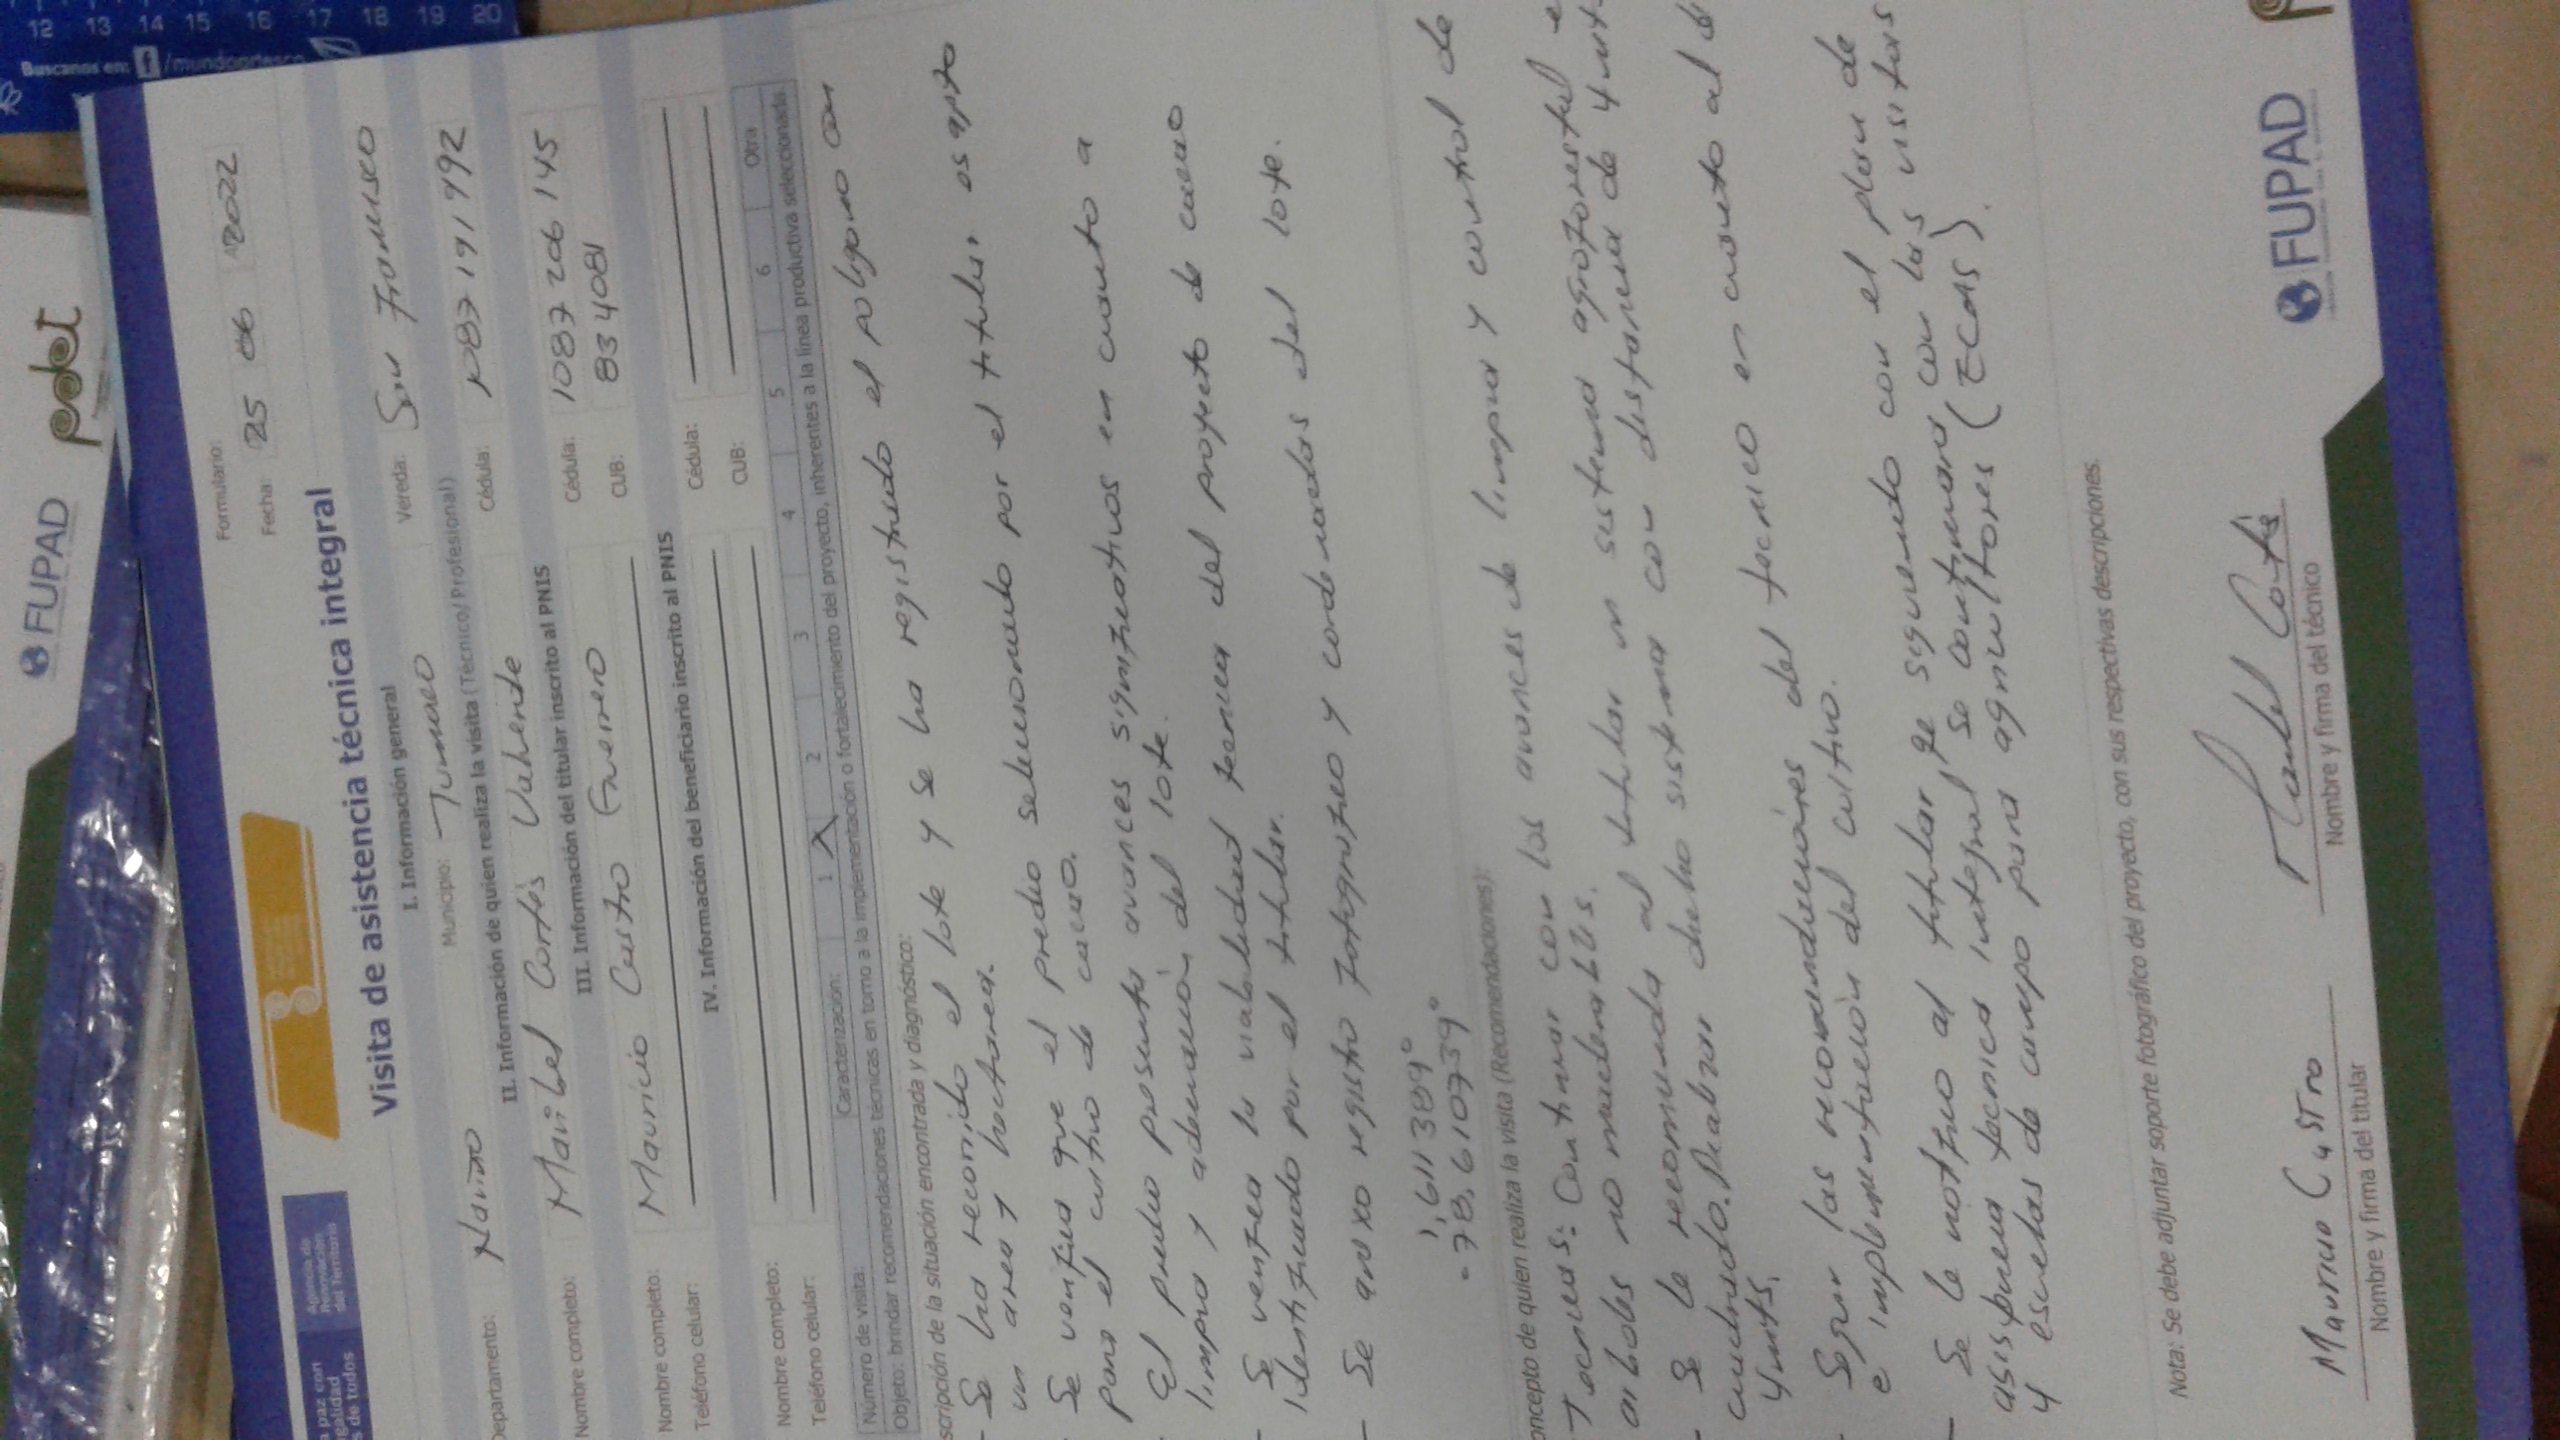 12 13 14 15 16 17 18 19 20
Buscanos en: f /mundoartesco
FUPAD
pdet
a paz con
legalidad
s de todos
Agencia de
Renovación
del Territorio
Formulario:
Fecha: 25 06 2022
Visita de asistencia técnica integral
I. Información general
Departamento: Nariño Municipio: Tumaco Vereda: San Francisco
II. Información de quien realiza la visita (Técnico/Profesional)
Nombre completo: Maribel Cortés Valiente Cédula: 1087191492
III. Información del titular inscrito al PNIS
Nombre completo: Mauricio Castro Guerrero Cédula: 1087206145
Teléfono celular: CUB: 834081
IV. Información del beneficiario inscrito al PNIS
Nombre completo: Cédula:
Teléfono celular: CUB:
Número de visita: Caracterización: 1 X 2 3 4 5 6 Otra
Objeto: brindar recomendaciones técnicas en torno a la implementación o fortalecimiento del proyecto, inherentes a la línea productiva seleccionada.
scripción de la situación encontrada y diagnóstico:
- Se ha recorrido el lote y se ha registrado el poligono con
un area 1 hectarea.
- Se verifica que el predio seleccionado por el titular es apto
para el cultivo de cacao.
El predio presenta avances significativos en cuanto a
limpia y adecuación del lote.
- Se verifica la viabilidad tecnica del proyecto de cacao
identificado por el titular.
- Se anexo registro fotografico y cordenadas del lote.
1,611389°
-78,610739°
oncepto de quien realiza la visita (Recomendaciones):
Tecnicas: Continuar con los avances de limpia y control de
arboles no maderables.
- Se le recomienda al titular un sistema agroforestal e
cuadrado. Realizar dicho sistema con distancia de 4 mt
4 mts.
- Seguir las recomendaciones del tecnico en cuanto al
e implementación del cultivo.
- Se le notifico al titular qe siguiendo con el plan de
asistencia tecnica integral se continuara con las visitas
y escuelas de campo para agricultores (ECAS).
Nota: Se debe adjuntar soporte fotográfico del proyecto, con sus respectivas descripciones.
Mauricio Castro
Nombre y firma del titular
Maribel Cortés
Nombre y firma del técnico
FUPAD